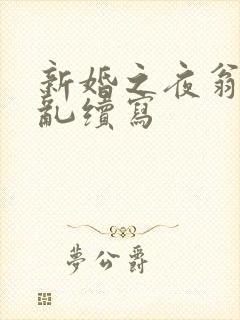 新婚之夜翁
亂續寫
夢公爵